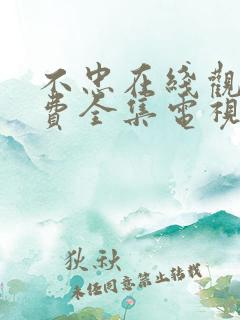 不忠在綫觀
費全集電視
狄秋
未经同意禁止转载